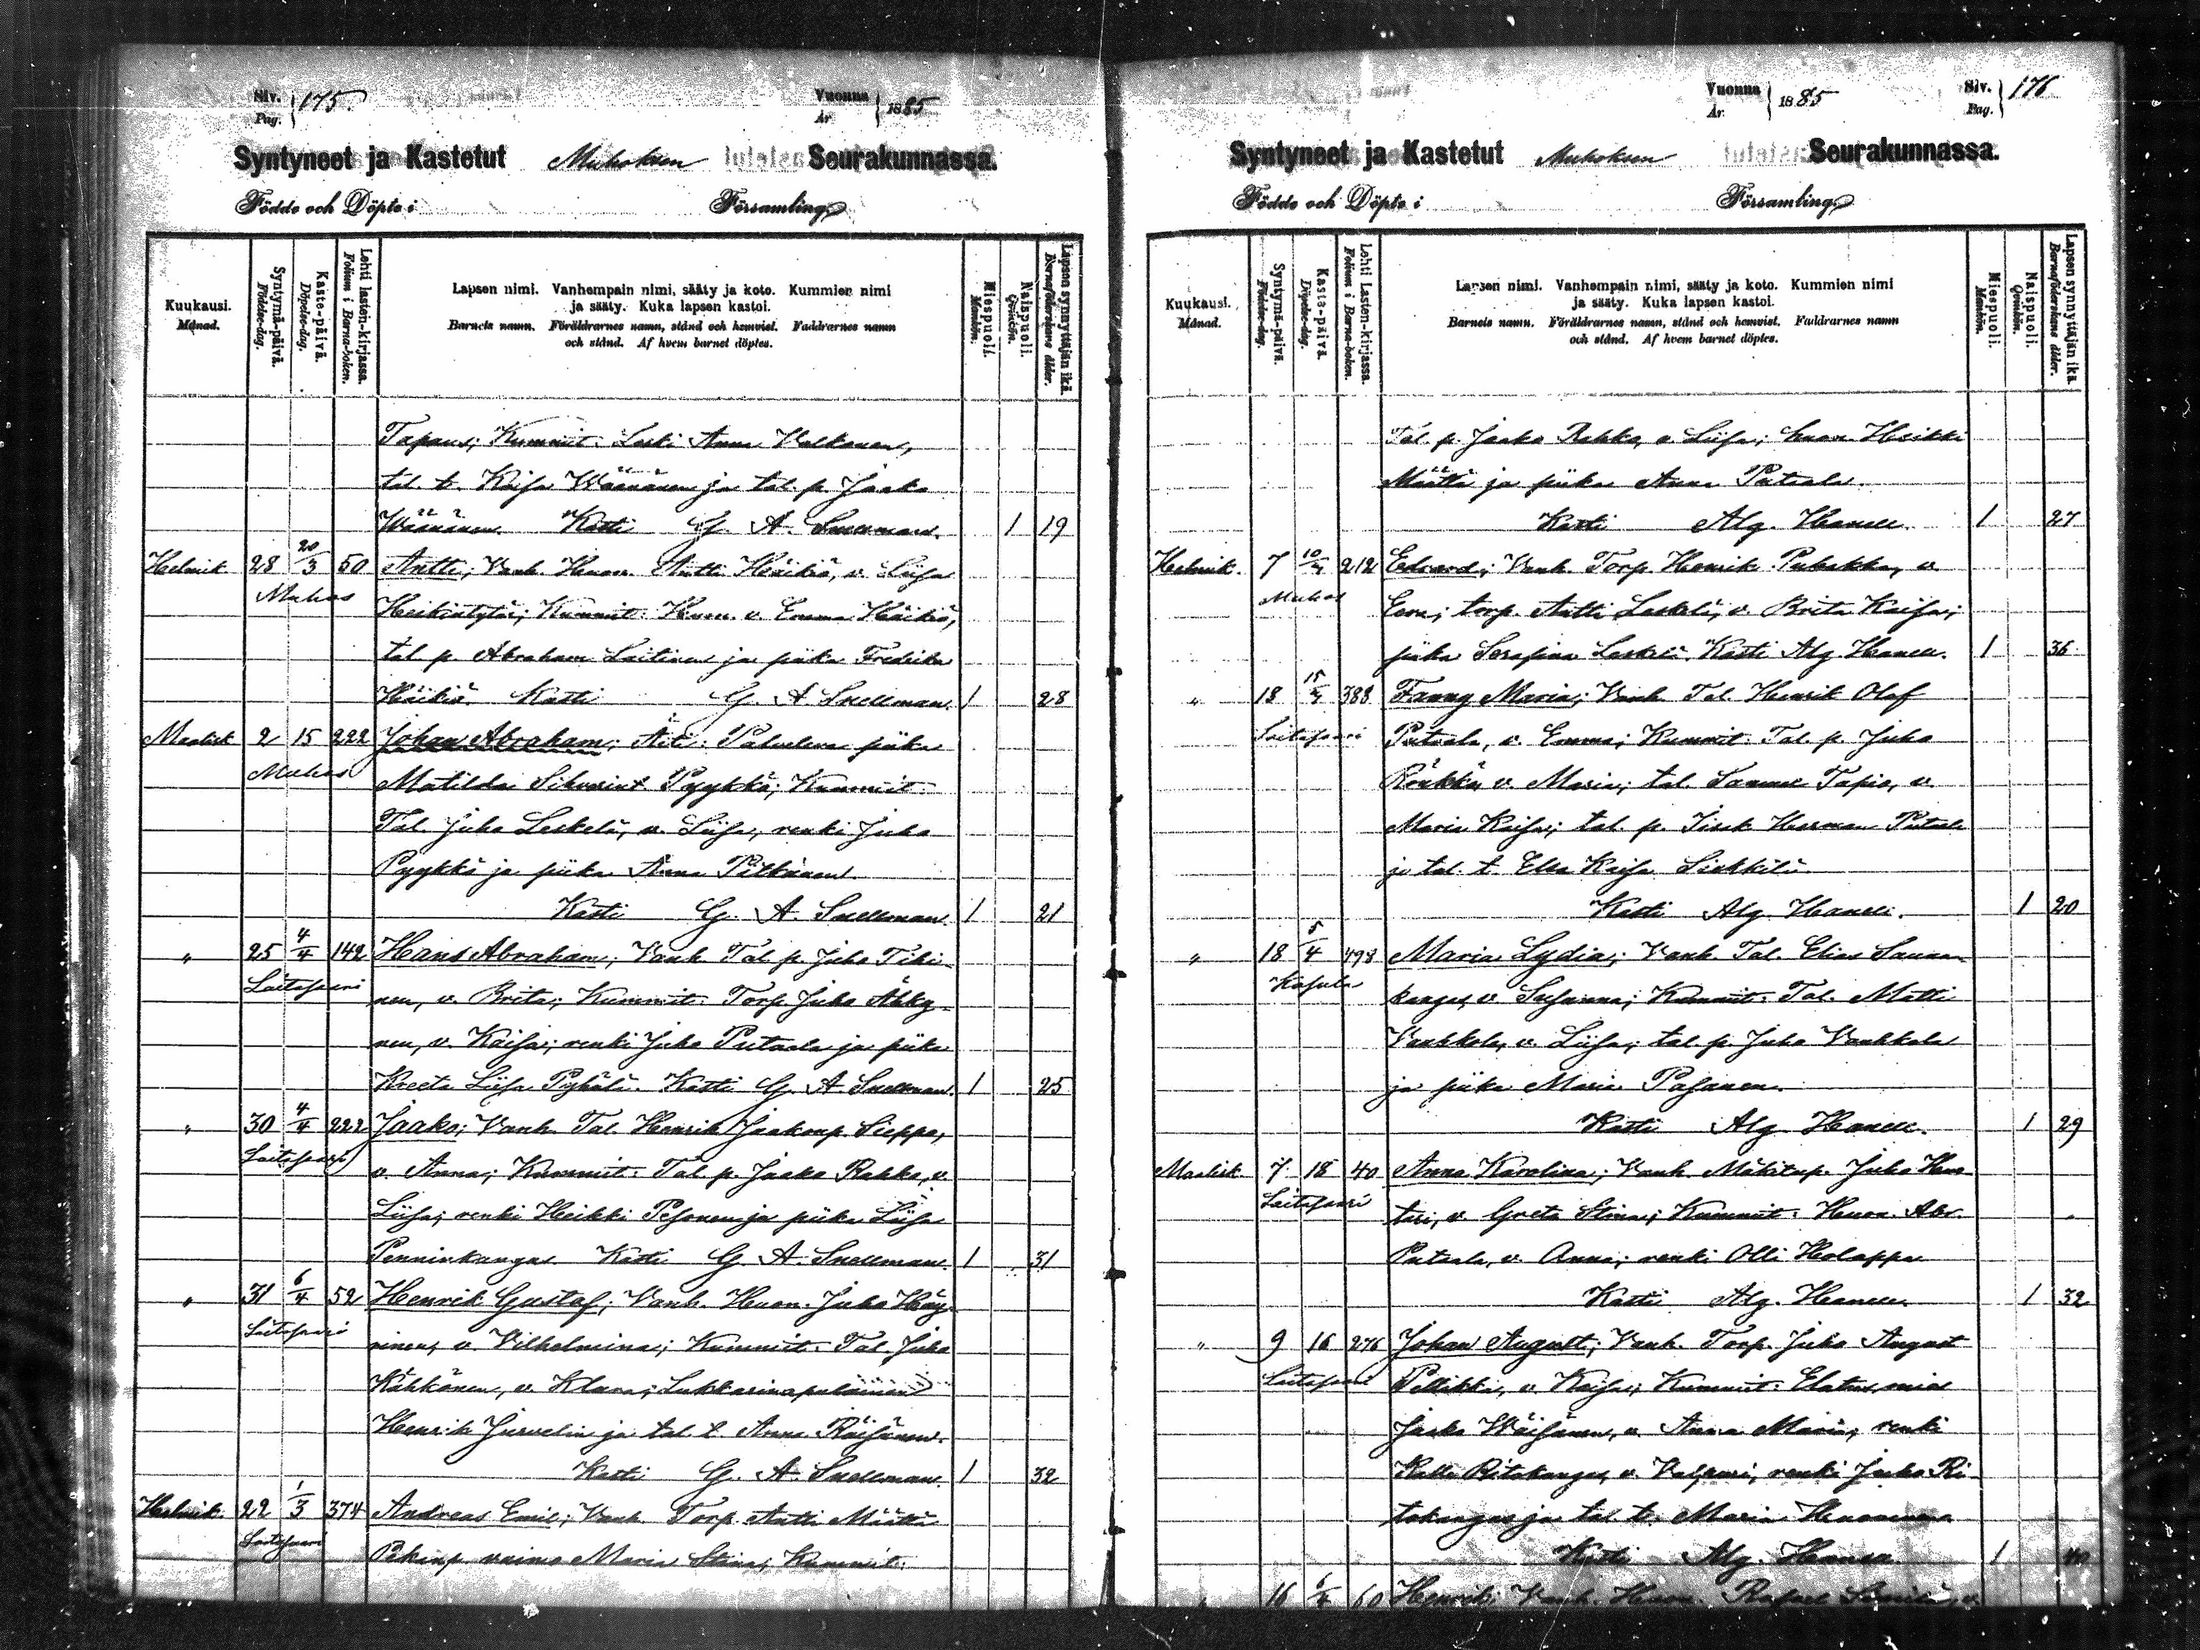 Siv. Pag. 175.
Vuonna År 1885
Syntyneet ja Kastetut Muhoksen Seurakunnassa.
Födde och Döpte i Församling
Kuukausi. Månad.
Syntymä-päivä. Födelse-dag.
Kaste-päivä. Döpelse-dag.
Lehti lasten-kirjassa. Folium i Barna-boken.
Lapsen nimi. Vanhempain nimi, sääty ja koto. Kummien nimi
ja sääty. Kuka lapsen kastoi.
Barnets namn. Föräldrarnes namn, stånd och hemvist. Faddrarnes namn
och stånd. Af hvem barnet döptes.
Miespuoli. Mankön.
Naispuoli. Qvinkön.
Lapsen synnyttäjän ikä. Barnaföderskans ålder.
Tapani; Kummit: Leski Anna Valkonen,
tal. t. Kaisa Väänänen ja tal. p. Jaako
Väänänen. Kasti G. A. Snellman. 1 19
Helmik. 28 20/3 50 Antti; Vanh. Huon. Antti Häikiö, v. Liisa
Muhos Heikintytär; Kummit: Huon. v. Emma Häikiö,
tal. p. Abraham Laitinen ja piika Fredrika
Häikiö. Kasti G. A. Snellman. 1 28
Maalisk. 2 15 222 Johan Abraham; Äiti: Palveleva piika
Muhos Matilda Pyykkö; Kummit:
Tal. Juho Leskelä, v. Liisa, renki Juho
Pyykkö ja piika Anna Pitkänen.
Kasti G. A. Snellman. 1 21
" 25 4/4 142 Hans Abraham; Vanh. Tal. p. Juho Tihi-
Laitasaari nen, v. Brita; Kummit: Torp. Juho Ähky-
nen, v. Kaisa; renki Juho Putaala ja piika
Kreeta Liisa Pyhälä. Kasti G. A. Snellman. 1 25
" 30 4/4 222 Jaako; Vanh. Tal. Henrik Jaakonp. Sieppo,
Laitasaari v. Anna; Kummit: Tal. p. Jaako Rahko, v.
Liisa; renki Heikki Pesonen ja piika Liisa
Penninkangas. Kasti G. A. Snellman. 1 31
" 31 6/4 52 Henrik Gustaf; Vanh. Huon. Juho Häy-
Laitasaari rinen, v. Vilhelmina; Kummit: Tal. Juho
Kähkönen, v. Klara; Lukkarinapulainen
Henrik Jurvelin ja tal. t. Anna Räisänen.
Kasti G. A. Snellman. 1 32
Helmik. 22 1/3 374 Andreas Emil; Vanh. Torp. Antti Määttä
Laitasaari Pekanp. vaimo Maria Stina; Kummit:
Vuonna År 1885
Siv. Pag. 176
Syntyneet ja Kastetut Muhoksen Seurakunnassa.
Födde och Döpte i Församling
Kuukausi. Månad.
Syntymä-päivä. Födelse-dag.
Kaste-päivä. Döpelse-dag.
Lehti Lasten-kirjassa. Folium i Barna-boken.
Lapsen nimi. Vanhempain nimi, sääty ja koto. Kummien nimi
ja sääty. Kuka lapsen kastoi.
Barnets namn. Föräldrarnes namn, stånd och hemvist. Faddrarnes namn
och stånd. Af hvem barnet döptes.
Miespuoli. Mankön.
Naispuoli. Qvinkön.
Lapsen synnyttäjän ikä. Barnaföderskans ålder.
Tal. p. Jaako Rahko, v. Liisa; huon. Heikki
Määttä ja piika Anna Putaala.
Kasti Alg. Hanell. 1 27
Helmik. 7 212 Edvard; Vanh. Torp. Henrik Pubakka, v.
Muhos Eeva; torp. Antti Leskelä, v. Brita Kaisa;
piika Serafina Leskelä. Kasti Alg. Hanell. 1 36
" 18 388 Fanny Maria; Vanh. Tal. Henrik Olof
Laitasaari Putaala, v. Emma; Kummit: Tal. p. Juho
v. Maria; tal. Samuel Tapio, v.
Maria Kaisa; tal. p. Isak Herman Putaala
ja tal. t. Elsa Kaisa
Kasti Alg. Hanell. 1 20
" 18 5/4 498 Maria Lydia; Vanh. Tal. Elias Sauna-
kangas, v. Susanna; Kummit: Tal. Matti
Vankkola, v. Liisa; tal. p. Juho Vankkala
ja piika Maria Pasanen.
Kasti Alg. Hanell. 1 29
Maalisk. 7 18 40 Anna Karolina; Vanh. Mäkitup. Juho Huo-
Laitasaari tari, v. Greta Stina; Kummit: Huon. Abr.
Putaala, v. Anna; renki Olli Holappa
Kasti Alg. Hanell. 1 32
" 9 16 276 Johan August; Vanh. Torp. Juho August
Laitasaari Pellikka, v. Kaisa; Kummit: Elatusmies
Jaako Väisänen, v. Anna Maria; renki
Kalle Ritokangas, v. Valpuri, renki Juho Ri-
tokangas ja tal. t. Maria Huovinen
Kasti Alg. Hanell 1 40
" 16 60 Henrik; Vanh. Huon. Rafael